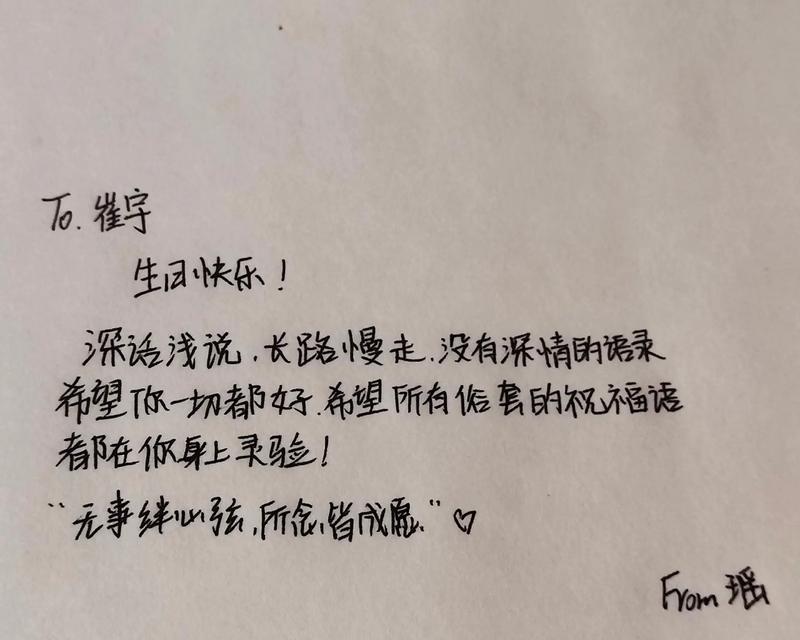 To. 崔宇
生日快乐！
深话浅说，长路慢走，没有深情的语录
希望你一切都好，希望所有俗套的祝福语
都在你身上灵验！
“无事绊心弦，所念皆成愿。”♡
From 瑶